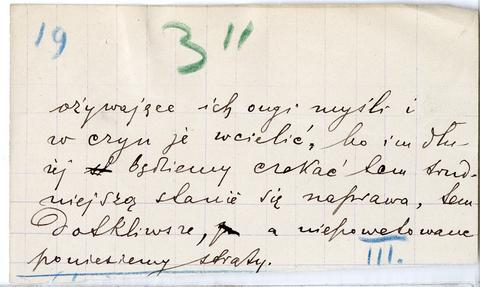 19 3"
ożywające ich ongi myśli i
w czyn je wcielić, bo im dłu-
żej będziemy czekać tem trud-
niejszą stanie się naprawa, tem
dotkliwsze, a niepowetowane
poniesiemy straty.
III.